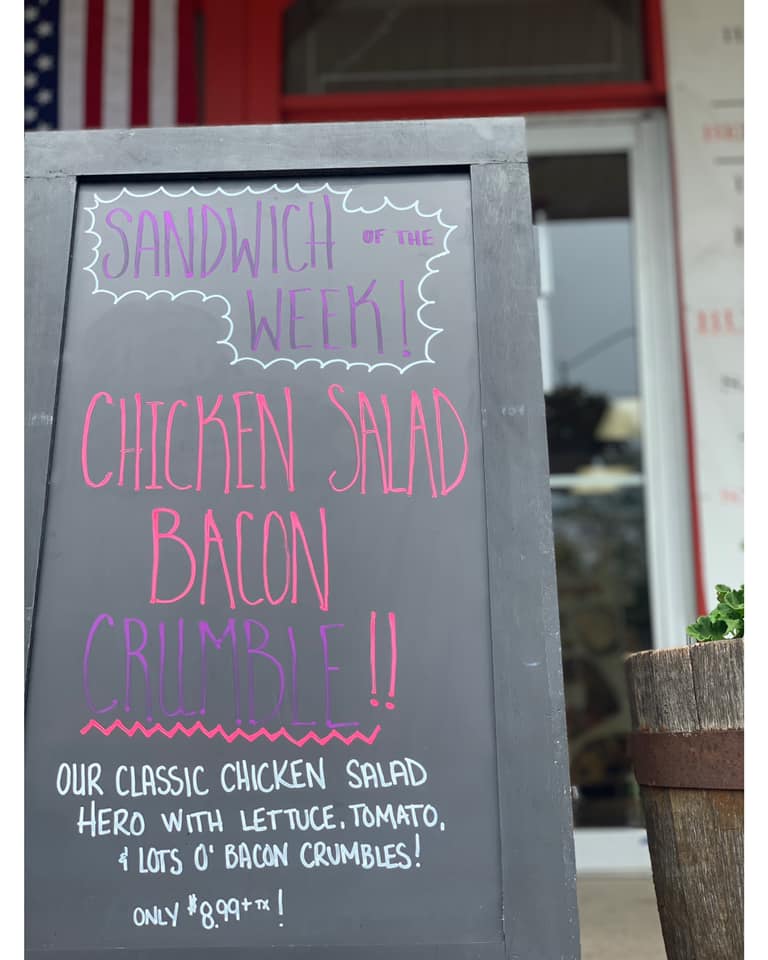 SANDWICH OF THE
WEEK!
CHICKEN SALAD
BACON
CRUMBLE!!
OUR CLASSIC CHICKEN SALAD
HERO WITH LETTUCE, TOMATO,
& LOTS O' BACON CRUMBLES!
ONLY $8.99 + TX!